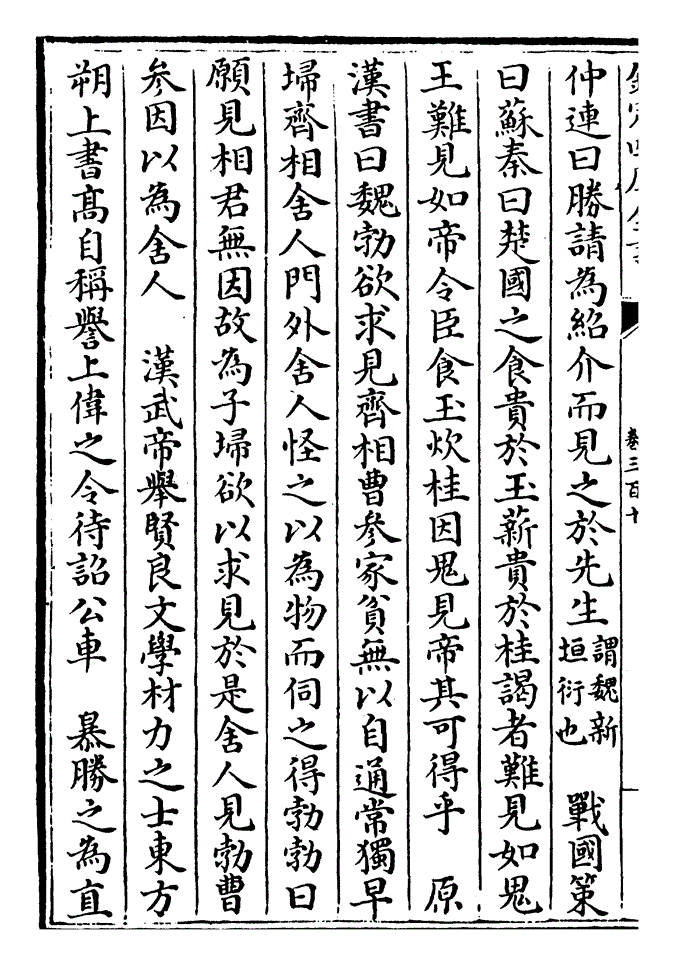 欽定四庫全書
卷三百十
仲連曰勝請為紹介而見之於先生謂魏新垣衍也　戰國策
曰蘇秦曰楚國之食貴於玉薪貴於桂謁者難見如鬼
王難見如帝令臣食玉炊桂因鬼見帝其可得乎　原
漢書曰魏勃欲求見齊相曹參家貧無以自通常獨早
埽齊相舍人門外舍人怪之以為物而伺之得勃勃曰
願見相君無因故為子埽欲以求見於是舍人見勃曹
參因以為舍人　漢武帝舉賢良文學材力之士東方
朔上書髙自稱譽上偉之令待詔公車　暴勝之為直